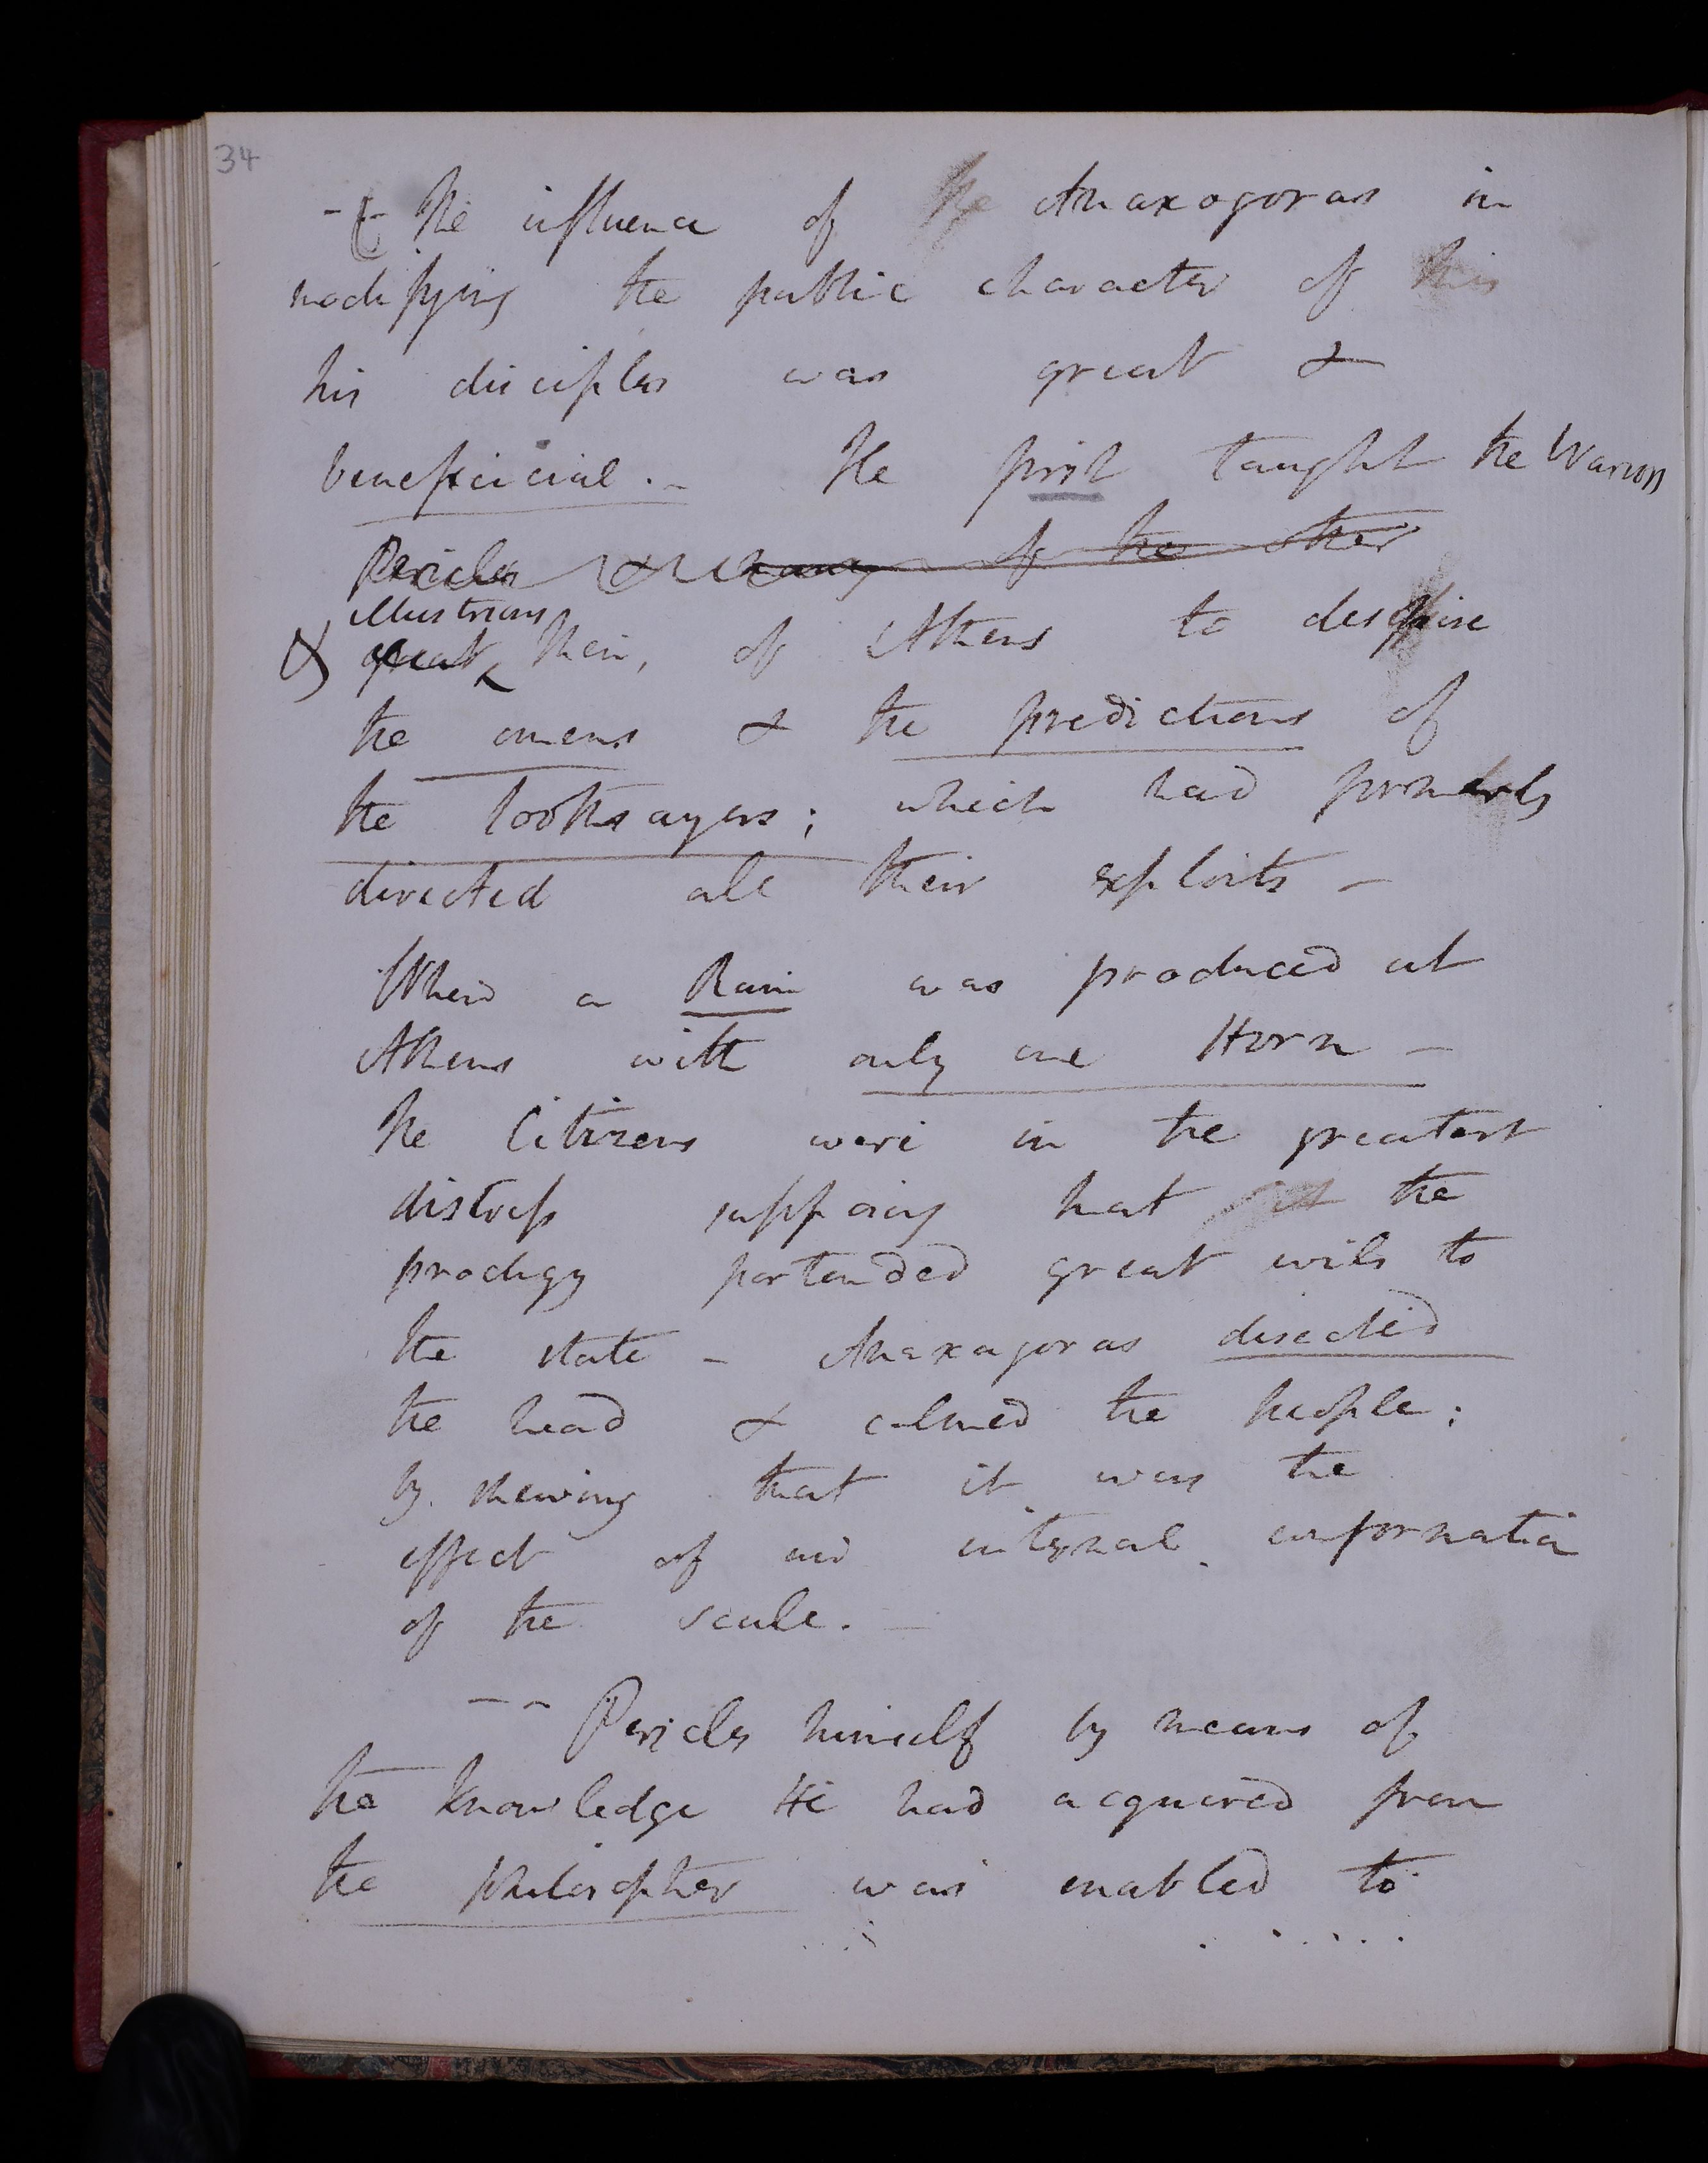 34
-- The influence of the Anaxagoras in
modifying the public character of his
his disciples was great &
beneficial. - He first taught the Warriors
Pericles & many of the other
illustrious
& great Men, of Athens to despise
the omens & the predictions of
the soothsayers; which had formerly
directed all their exploits -
When a Ram was produced at
Athens with only one Horn -
The Citizens were in the greatest
distress supposing that the
prodigy portended great evils to
the state - Anaxagoras disected
the head & calmed the people;
by shewing that it was the
effect of an internal conformation
of the scule. -
-- Pericles himself by means of
the knowledge He had acquired from
the philosopher was enabled to